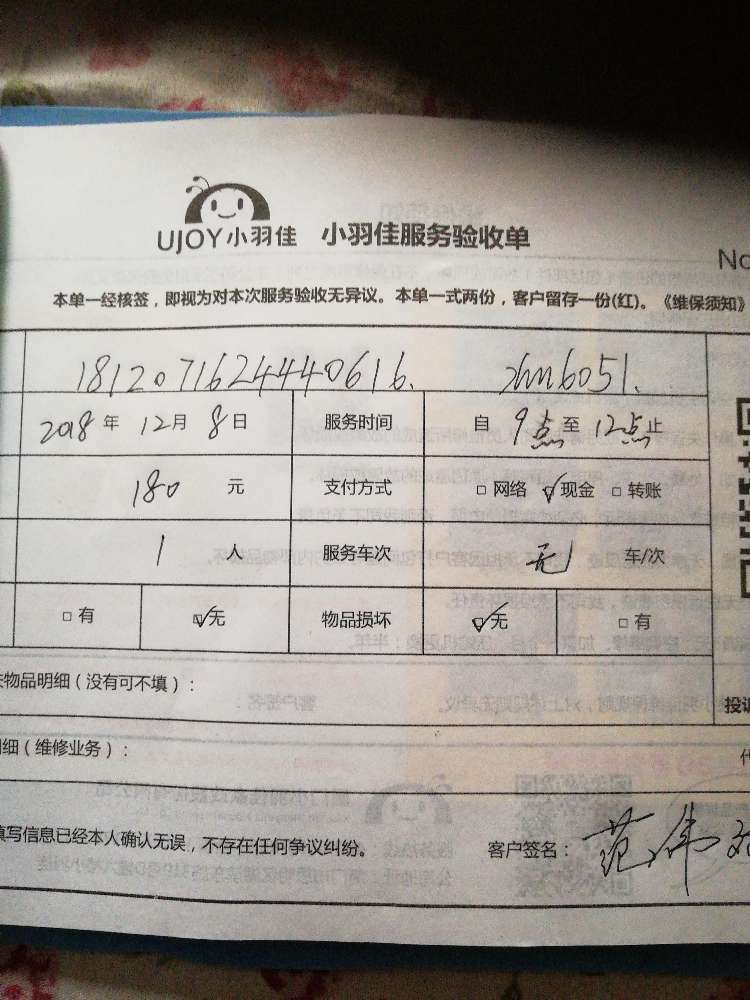 UJOY小羽佳 小羽佳服务验收单
No
本单一经核签，即视为对本次服务验收无异议。本单一式两份，客户留存一份(红)。《维保须知》
1812071624440616. zhn6051.
2018年12月8日 服务时间 自9点至12点止
180元 支付方式 □网络 ☑现金 □转账
1人 服务车次 无 车/次
□有 ☑无 物品损坏 ☑无 □有
物品明细（没有可不填）：
投诉
细（维修业务）：
填写信息已经本人确认无误，不存在任何争议纠纷。 客户签名：范伟